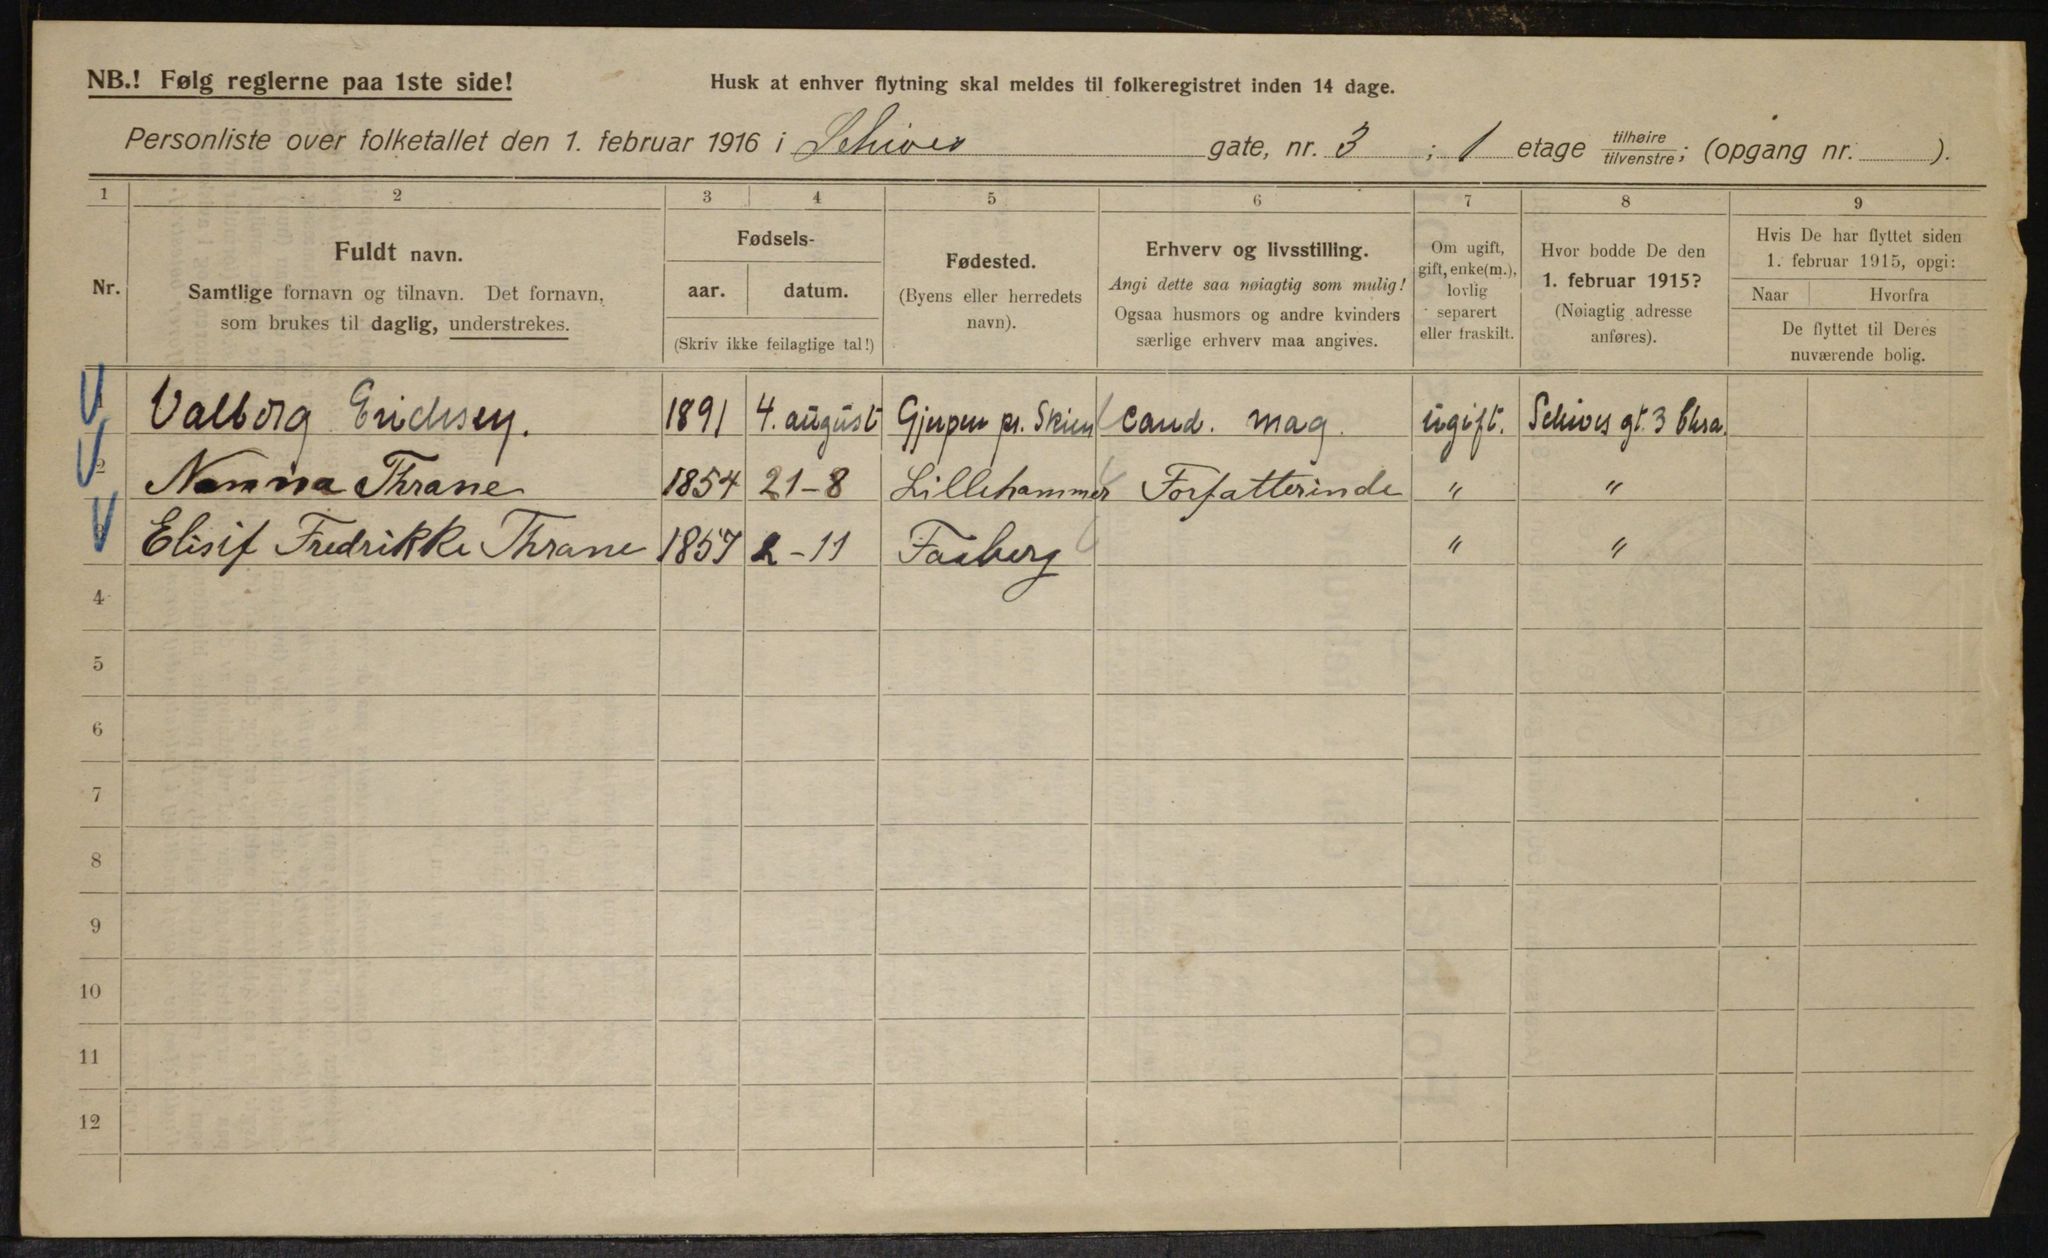 NB.! Følg reglerne paa 1ste side!
Husk at enhver flytning skal meldes til folkeregistret inden 14 dage.
Personliste over folketallet den 1. februar 1916 i Schives gate, nr. 3 ; 1 etage tilhøire tilvenstre; (opgang nr. ).
1 2 3 4 5 6 7 8 9
Nr.
Fuldt navn.
Samtlige fornavn og tilnavn. Det fornavn,
som brukes til daglig, understrekes.
Fødsels-
aar. datum.
(Skriv ikke feilagtige tal!)
Fødested.
(Byens eller herredets
navn).
Erhverv og livsstilling.
Angi dette saa nøiagtig som mulig!
Ogsaa husmors og andre kvinders
særlige erhverv maa angives.
Om ugift,
gift, enke(m.),
lovlig
separert
eller fraskilt.
Hvor bodde De den
1. februar 1915?
(Nøiagtig adresse
anføres).
Hvis De har flyttet siden
1. februar 1915, opgi:
Naar Hvorfra
De flyttet til Deres
nuværende bolig.
1 Valborg Erichsen. 1891 4. august Gjerpen pr. Skien cand. mag. ugift. Schives gt. 3 Chra.
2 Nanna Thrane 1854 21-8 Lillehammer Forfatterinde " "
3 Elisif Fredrikke Thrane 1857 2-11 Faaberg " "
4
5
6
7
8
9
10
11
12